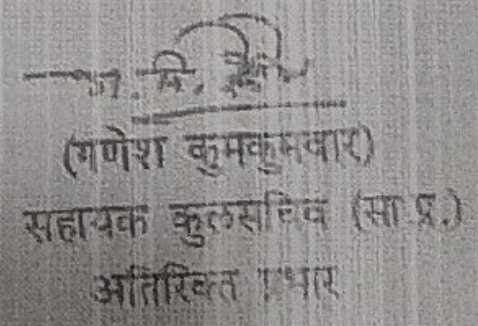 (गणेश कुमकुमवार)
सहायक कुलसचिव (सा.प्र.)
अतिरिक्त प्रभार